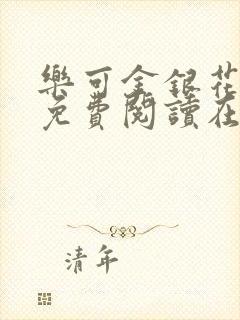 樂可金銀花
免費閱讀在
清年